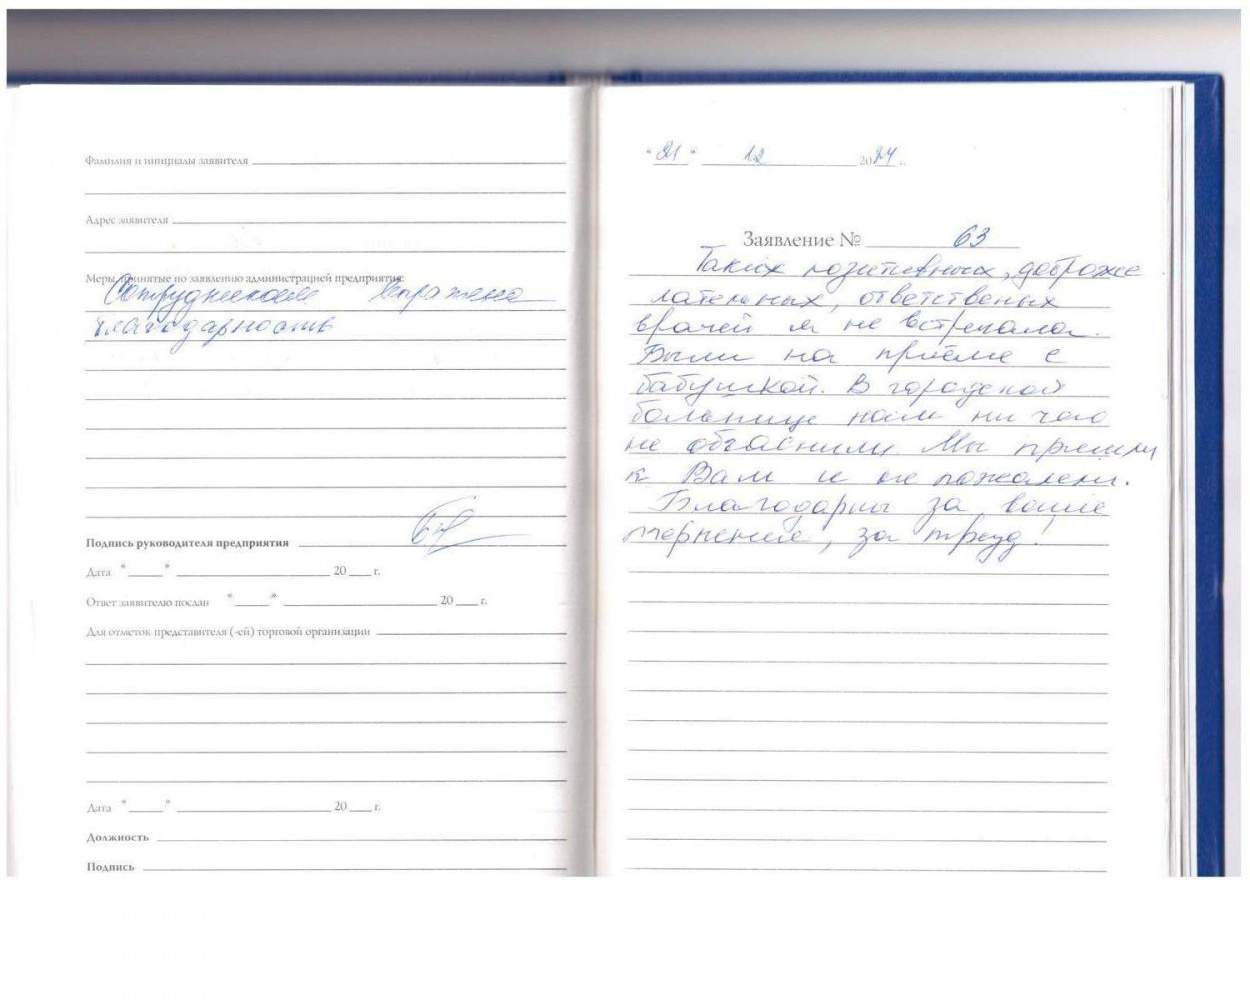 Фамилия и инициалы заявителя
Адрес заявителя
Меры, принятые по заявлению администрацией предприятия:
Сотрудникам выражена
благодарность
Подпись руководителя предприятия
Дата "____" ____ 20 ___ г.
Ответ заявителю послан "____" ____ 20 ___ г.
Для отметок представителя (-ей) торговой организации
Дата "____" ____ 20 ___ г.
Должность
Подпись
"21" 12 2024 г.
Заявление № 63
Таких позитивных, доброже
лательных, ответственых
врачей я не встречала.
Были на приёме с
бабушкой. В городской
больнице нам ни чего
не объяснили. Мы пришли
к Вам и не пожалели.
Благодарны за ваше
терпение, за труд!